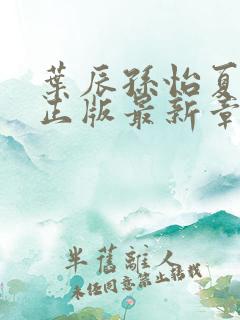 叶辰孙怡夏
正版最新章
半旧离人
未经同意禁止转载